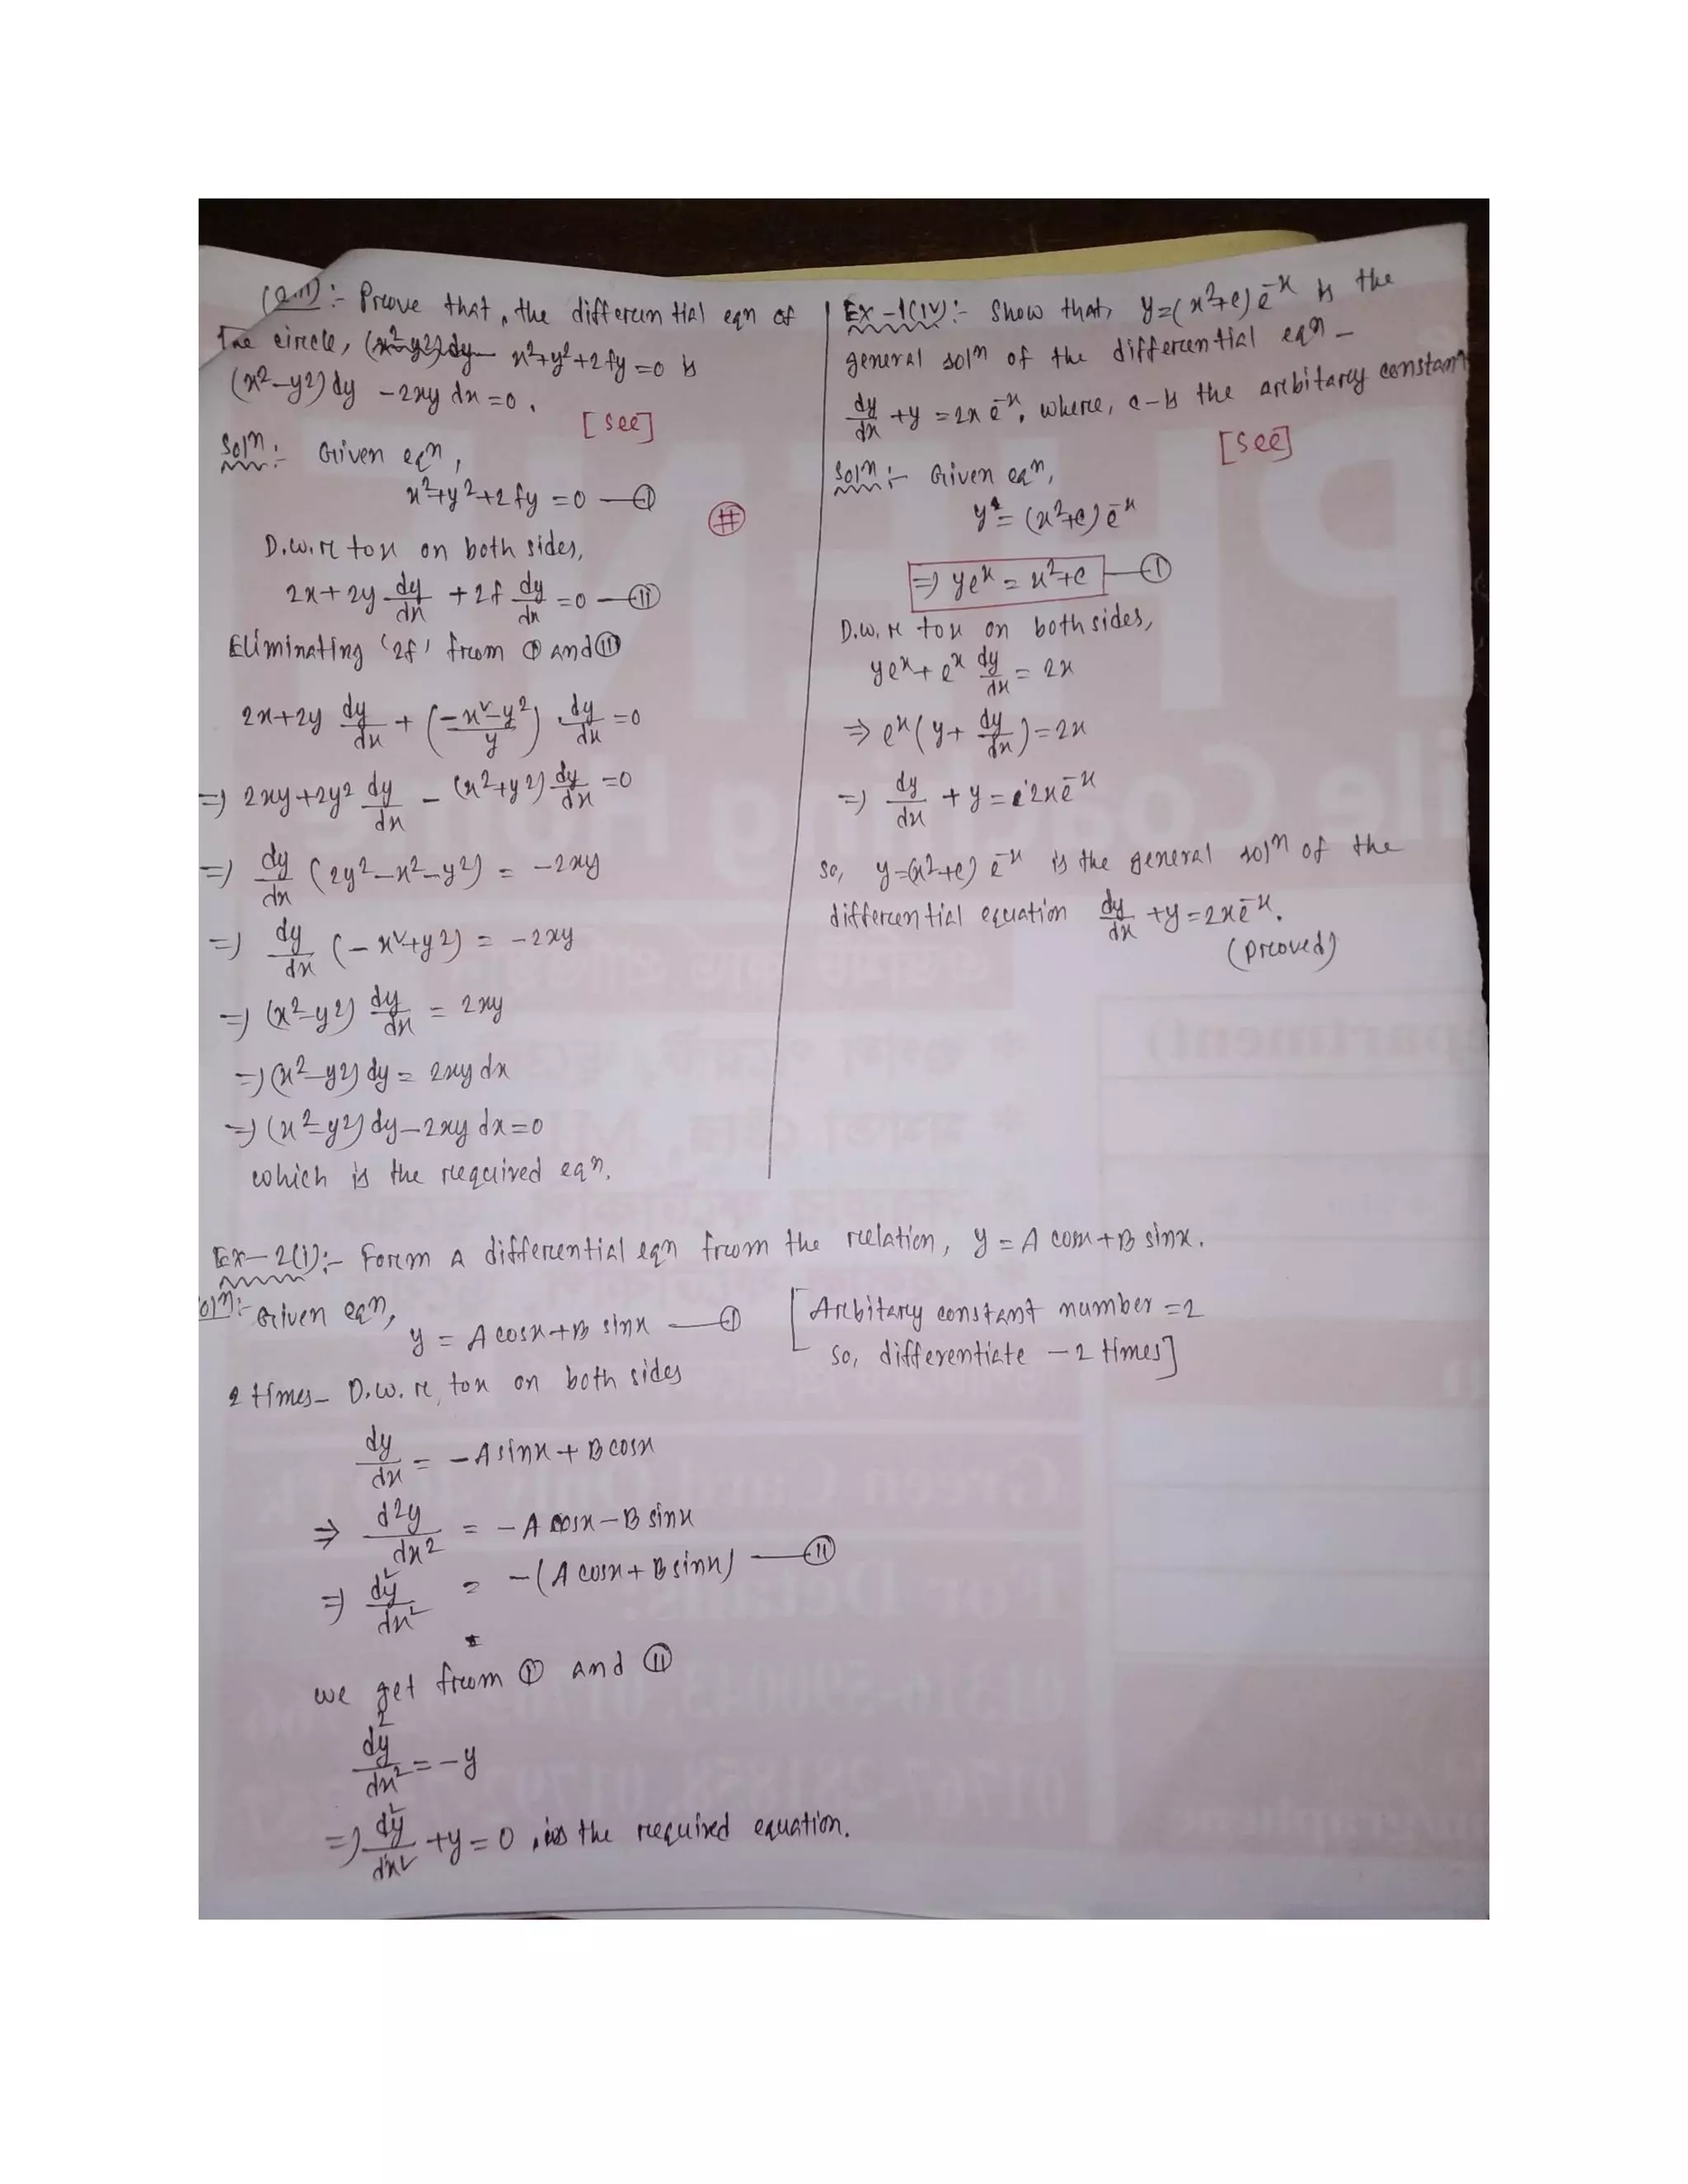 (2.11):- Prove that, the differential eqn of
The circle, x²+y²+2fy=0 is
(x²-y²) dy -2xy dx =0.
[see]
Solⁿ:- Given eqⁿ,
x²+y²+2fy =0 —Ⓘ
D.w.r to x on both sides,
2x+2y dy/dx +2f dy/dx =0 —(II)
Eliminating '2f' from (I) and (II)
2x+2y dy/dx + (-x²-y²/y) . dy/dx =0
=> 2xy+2y² dy/dx - (x²+y²) dy/dx =0
=> dy/dx (2y²-x²-y²) = -2xy
=> dy/dx (-x²+y²) = -2xy
=> (x²-y²) dy/dx = 2xy
=> (x²-y²) dy = 2xy dx
=> (x²-y²) dy-2xy dx=0
which is the required eqⁿ.
#
Ex-1(iv):- Show that, y=(x²+c) e⁻ˣ is the
general solⁿ of the differential eqⁿ -
dy/dx +y =2x e⁻ˣ, where, c-is the arbitary constant
[See]
Solⁿ:- Given eqⁿ,
y = (x²+c) e⁻ˣ
=> yeˣ = x²+c —(I)
D.w.r to x on both sides,
yeˣ+ eˣ dy/dx = 2x
=> eˣ (y+ dy/dx) = 2x
=> dy/dx + y = 2xe⁻ˣ
So, y=(x²+c) e⁻ˣ is the general solⁿ of the
differential equation dy/dx +y = 2xe⁻ˣ.
(proved)
Ex-2(i):- Form a differential eqn from the relation, y = A cosx+B sinx.
Solⁿ:- Given eqⁿ,
y = A cosx+B sinx —(I)
[Arbitary constant number =2
So, differentiate -2 times]
2 times- D.w.r, to x on both sides
dy/dx = -A sinx + B cosx
=> d²y/dx² = -A cosx-B sinx
=> d²y/dx² = -(A cosx+B sinx) —(II)
we get from (I) and (II)
d²y/dx² = -y
=> d²y/dx² +y = 0, is the required equation.